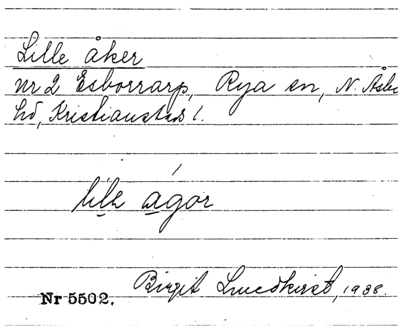 Lille åker
nr 2 Esborrarp, Rya sn, N. Åsbo
hd, Kristianstads l.
lilk agor
Nr 5502. Birgit Lundkvist, 1938.